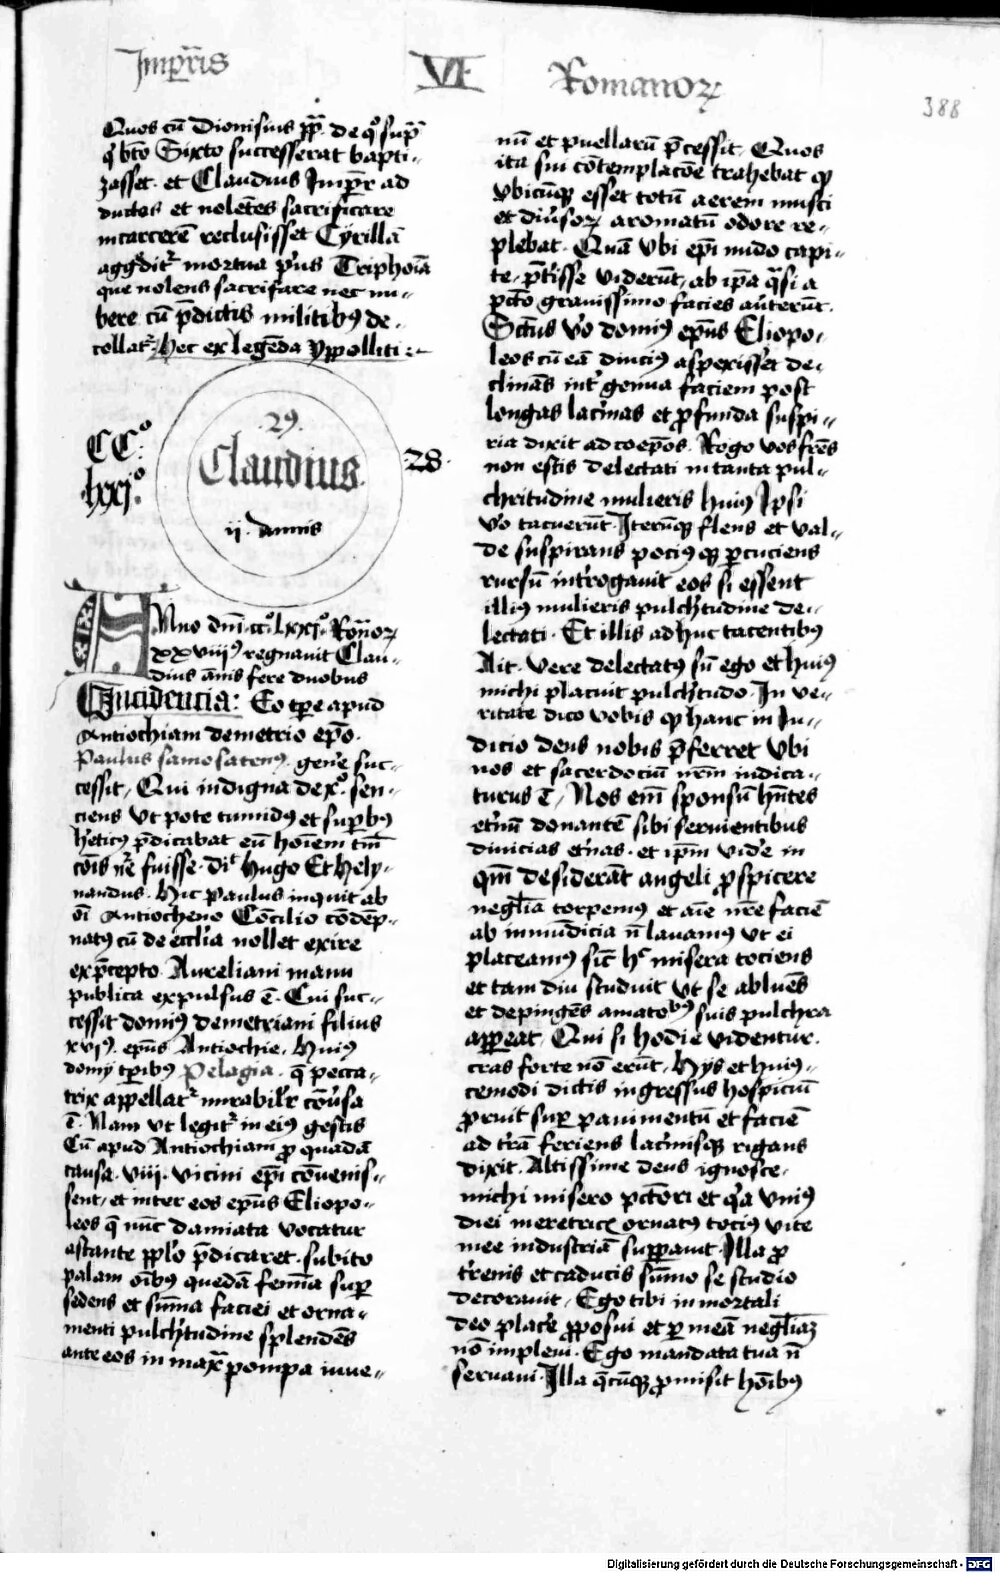 Imp̄ris VI Romanoꝝ
388
Quos cū Dionisius pp̄. de qͦ sup̄
qͥ bt̄o Sixto successerat bapti-
zasset. et Claudius Imp̄r ad
ductas et nolētes sacrificare
incarcerē reclusisset Cyrillā
mortua pͥus Triphoīa
que nolens sacrifare nec nu-
bere cū p̄dictis militibꝰ de-
collat᷑. Hec ex legēda ypolliti
.29.
Claudius.
ij. annis
CCͦ.
lxxjͦ.
.28.
Anno dnī. ccͦ. lxxjͦ. Roꝝ
xxviijꝰ regnauit Clau-
dius ānis fere duobus
Incidencia: Eo tp̄e apud
Antiochiam demetrio ep̄o.
Paulus samosatenꝰ. gen̄e suc-
cessit, Qui indigna de xͦ. sen-
ciens vt pote tumidꝰ et sup̄bꝰ
h̄eticꝰ p̄dicabat eū hoīem tm̄
cōis nr̄e fuisse. dīt Hugo Et Hely-
nandus. Hic Paulus inquit ab
oī Antiocheno Cōcilio cōdēp-
natꝰ cū de eccl̄ia nollet exire
ex p̄cepto Aureliani manu
publica expulsus ē. Cui suc-
cessit domꝰ demetriani filius
xvjꝰ. ep̄us Antiochie. Huiꝰ
domy tp̄ibꝰ Pelagia. q̄ pecca-
trix appellat᷑ mirabilr̄ cōuͥsa
ē. Nam vt legit᷑ in eiꝰ gestis
Cū apud Antiochiam ꝓ quadā
causa. viij. vicini ep̄i cōuenis-
sent, et inter eos ep̄us Eliopo-
leos q̄ nūc damiata vocatur
astante pplo p̄dicaret. subito
palam oībꝰ quedā femīa sup̄
sedens et sūma faciei et orna-
menti pulchͥtudine splendēs
ante eos in max̄ pompa iuue-
nū et puellarū p̄cessit, Quos
ita sui cōtemplacōe trahebat ꝙ
vbicūqꝫ esset totū aerem musci
et diuͥsoꝝ aromatū odore re-
plebat. Quā vbi ep̄i nudo capi-
te p̄t'isse viderūt, ab ip̄a qͣsi a
pc̄to grauissimo facies auͥterūt.
Sctūs vͦo domꝰ ep̄us Eliopo-
leos cū eā diuciꝰ aspexisset de-
clinās intͥ genua faciem post
longas lacͥmas et ꝓfunda suspi-
ria dixit ad coep̄os. Rogo vos fr̄es
non estis delectati in tanta pul-
chritudine mulieris huiꝰ Ipsi
vͦo tacuerūt. Iterūqꝫ flens et val-
de suspirans pociꝰ qꝫ p̄cuciens
rursū intͥrogauit eos si essent
illiꝰ mulieris pulchͥtudine de-
lectati. Et illis adhuc tacentibꝰ
Ait. vere delectatꝰ sū ego et huiꝰ
michi placuit pulchͥtudo. In ve-
ritate dico vobis ꝙ hanc in Iu-
dicio deus nobis p̄ferret vbi
nos et sacerdociū nr̄m iudica-
turus ē, Nos em̄ sponsū hn̄tes
etͥnū donantē sibi seruientibus
diuicias etͥnas. et ip̄m videͥ in
quē desiderāt angeli ꝓspicere
negl̄ia torpemꝰ et aīe nr̄e faciē
ab inmūdicia n̄ lauamꝰ vt ei
placeamꝰ sic̄ hͨ misera tociens
et tam diu studuit vt se abluēs
et depingēs amatoͥbꝰ suis pulchra
appeat, Qui si hodie videntur.
cras forte nō erūt. Hys et huiꝰ-
cemodi dictis ingressus hospiciū
ꝓruit sup̄ pauimentū et faciē
ad tͥrā feriens lacͥmisqꝫ rigans
dixit. Altissime deus ignosce-
michi misero pc̄tori et qͥa vniꝰ
diei meretricꝭ ornatꝰ tociꝰ vite
mee industriā suppauit. Illa ꝓ
tͥrenis et caducis sūmo se studio
decorauit, Ego tibi inmortali
deo placͥe ꝓposui et ꝑ meā negl̄iaꝫ
nō impleui. Ego mandata tua n̄
seruaui. Illa q̄cūqꝫ ꝓmisit hoībꝰ
Digitalisierung gefördert durch die Deutsche Forschungsgemeinschaft - DFG